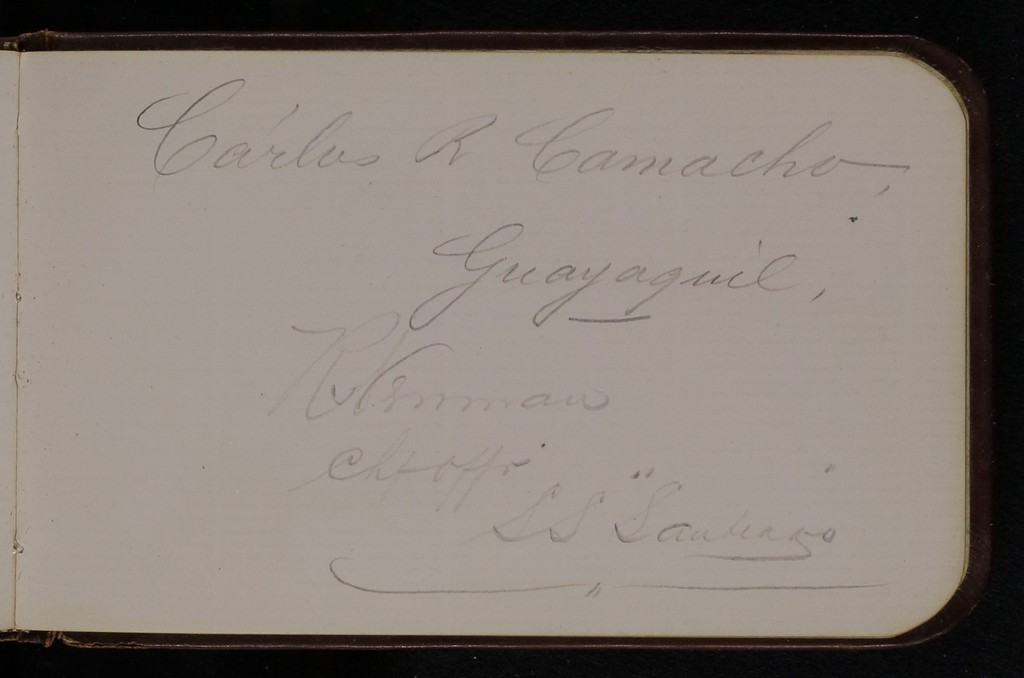 Cárlos R Camacho,
Guayaquil,
Chf offr
SS "Santiago"